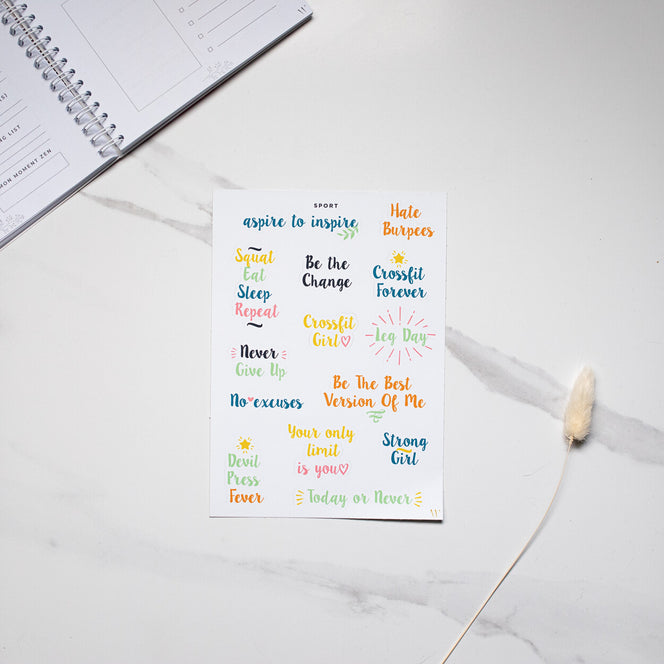 NG LIST
MON MOMENT ZEN
SPORT
aspire to inspire
Hate
Burpees
Squat
Eat
Sleep
Repeat
Be the
Change
Crossfit
Forever
Crossfit
Girl
Leg Day
Never
Give Up
Be The Best
Version Of Me
No excuses
Your only
limit
is you
Strong
Girl
Devil
Press
Fever
Today or Never
W